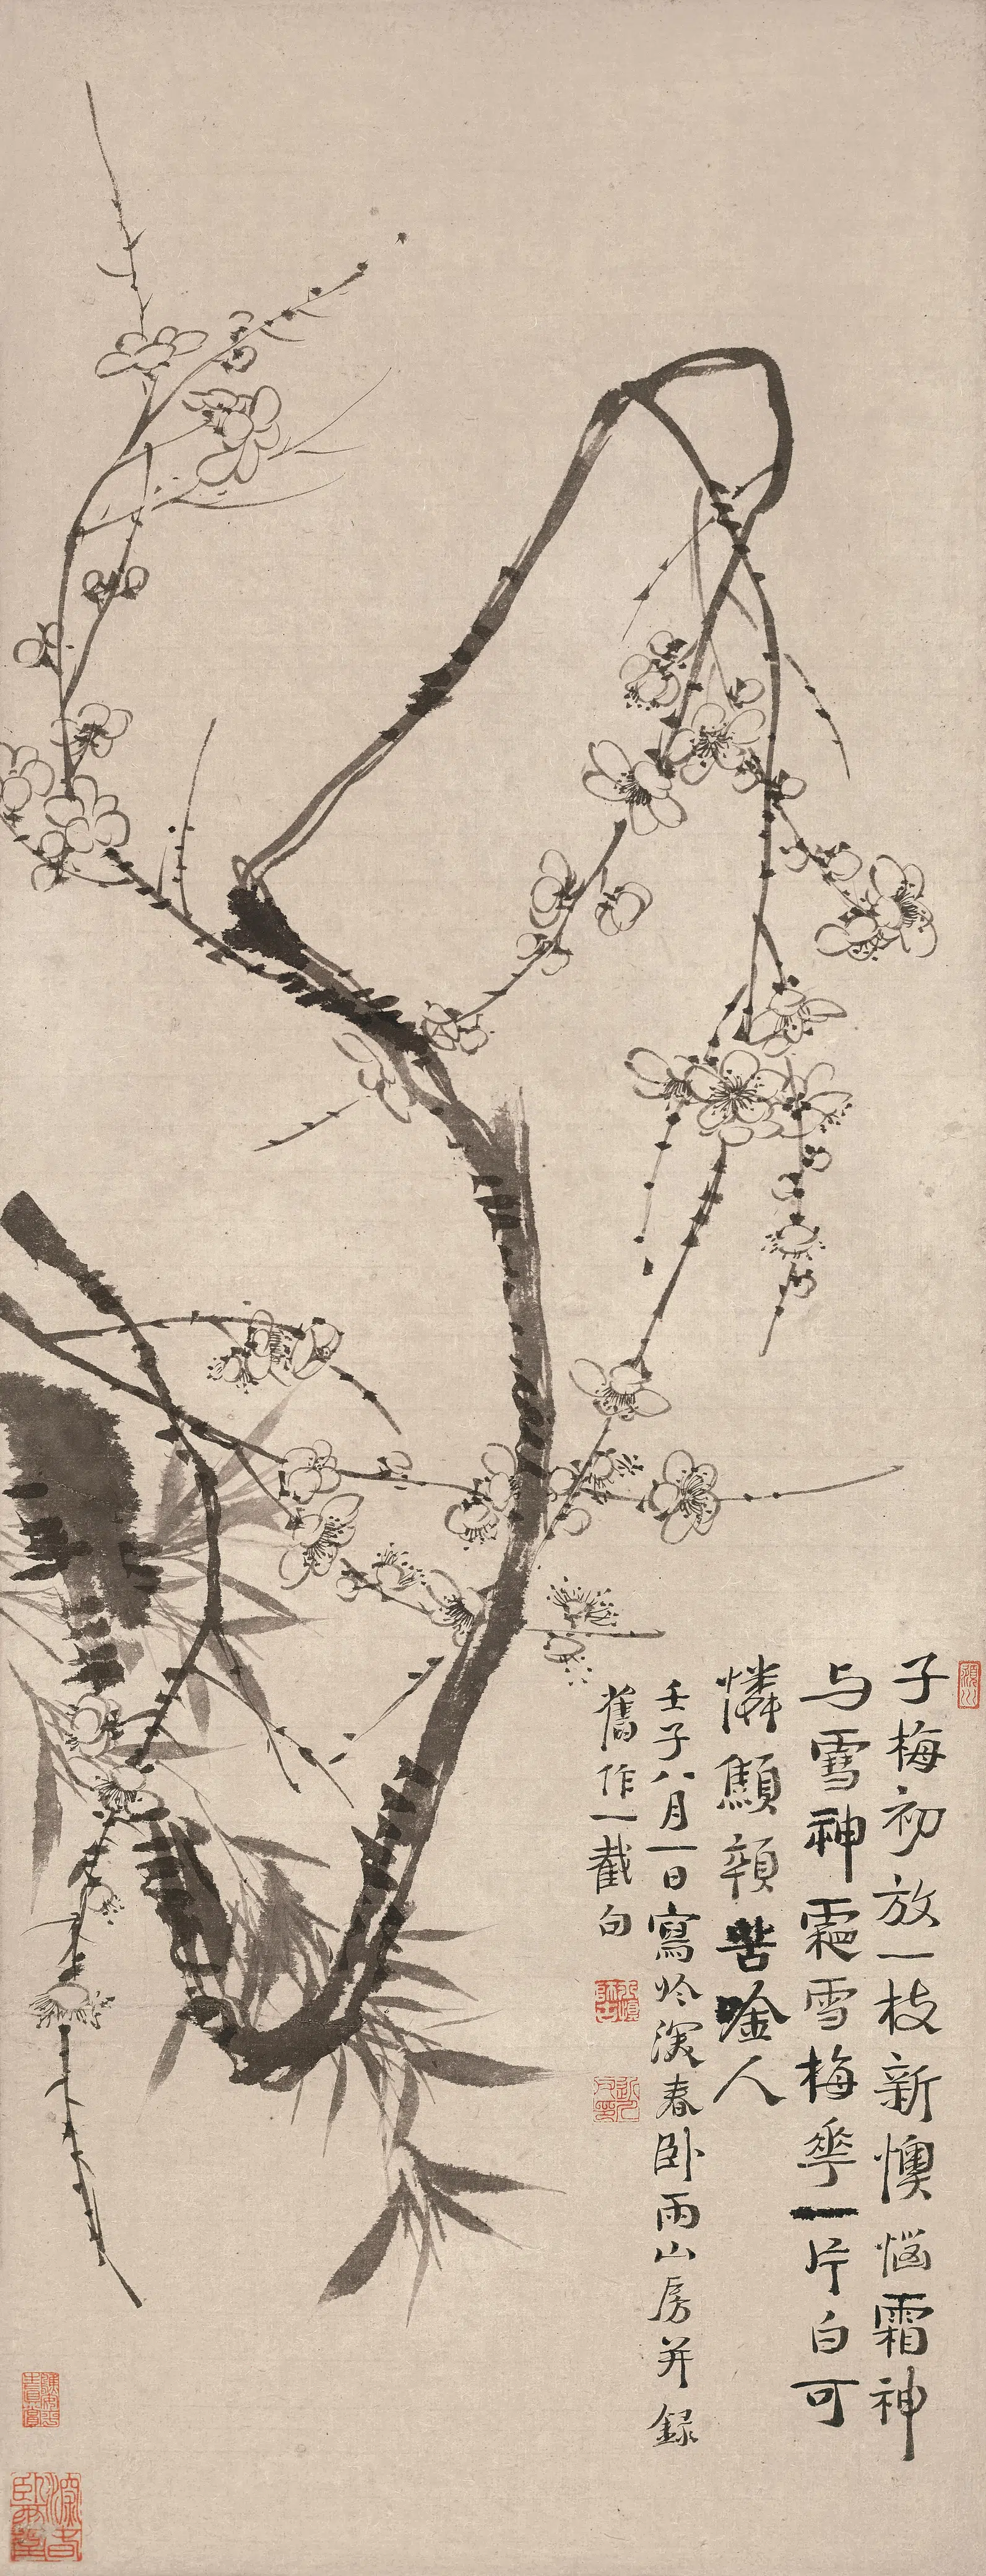 子梅初放一枝新懊惱霜神
与雪神霜雪梅華一片白可
憐顛頷苦唫人
壬子八月一日寫於深春卧雨山房并錄
舊作一截句